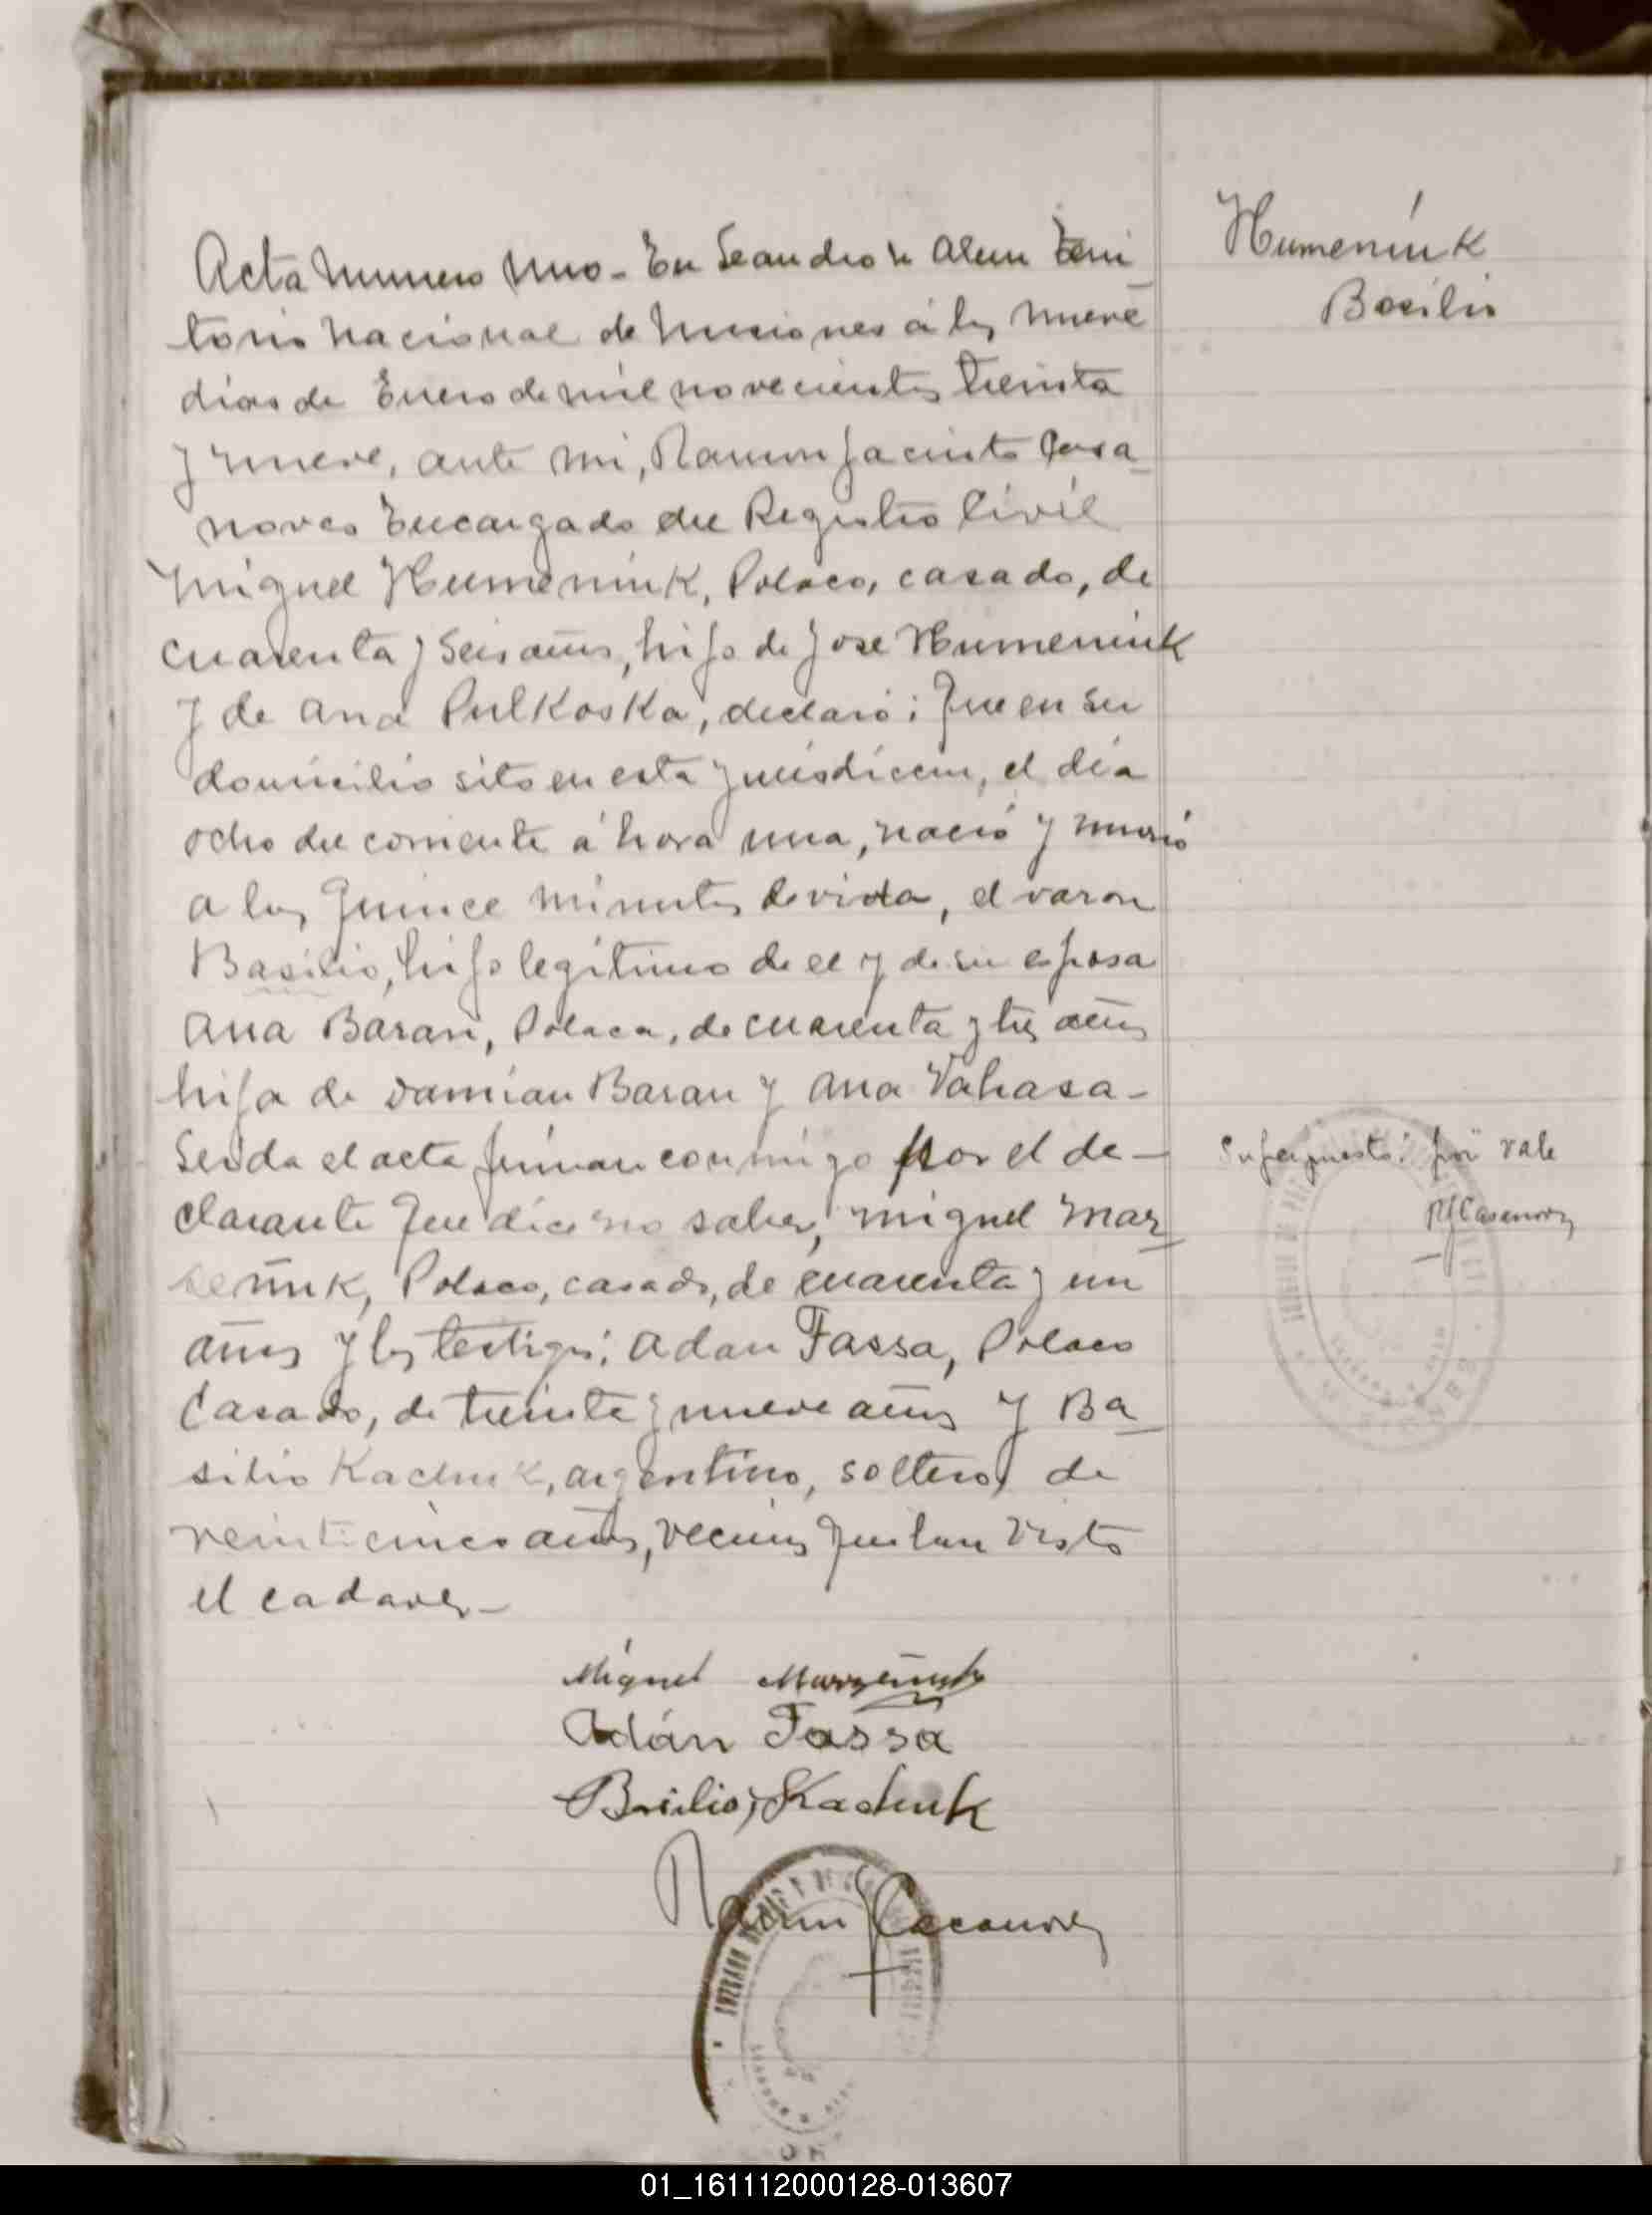 Acta Numero Uno - En Leandro N Alem Terri
torio Nacional de Misiones á los nueve
dias de Enero de mil novecientos treinta
y nueve, ante mi, Ramon Jacinto Casa
noves Encargado del Registro Civil
Miguel Humeniuk, Polaco, casado, de
cuarenta y seis años, hijo de Jose Humeniuk
y de Ana Pulkoska, declaró: Que en su
domicilio sito en esta jurisdiccion, el dia
ocho del corriente á hora una, nació y murió
a los quince minutos de vida, el varon
Basilio, hijo legitimo de el y de su esposa
Ana Baran, Polaca, de cuarenta y tres años
hija de Damian Baran y Ana Vahasa-
Leida el acta firman conmigo por el de-
clarante que dice no saber, Miguel Mar
seniuk, Polaco, casado, de cuarenta y un
años y los testigos: Adan Fassa, Polaco
Casado, de treinta y nueve años y Ba
silio Kachuk, argentino, soltero, de
veinticinco años, vecinos que han visto
el cadaver-
Miguel
Adán Fassa
Basilio Kachuk
Ramon J Casanoves
Humeniuk
Basilio
Superpuesto: por vale
RJCasanoves
01_161112000128-013607